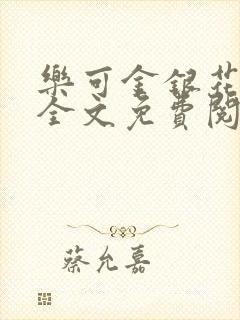 樂可金銀花
全文免費閱
蔡允嘉